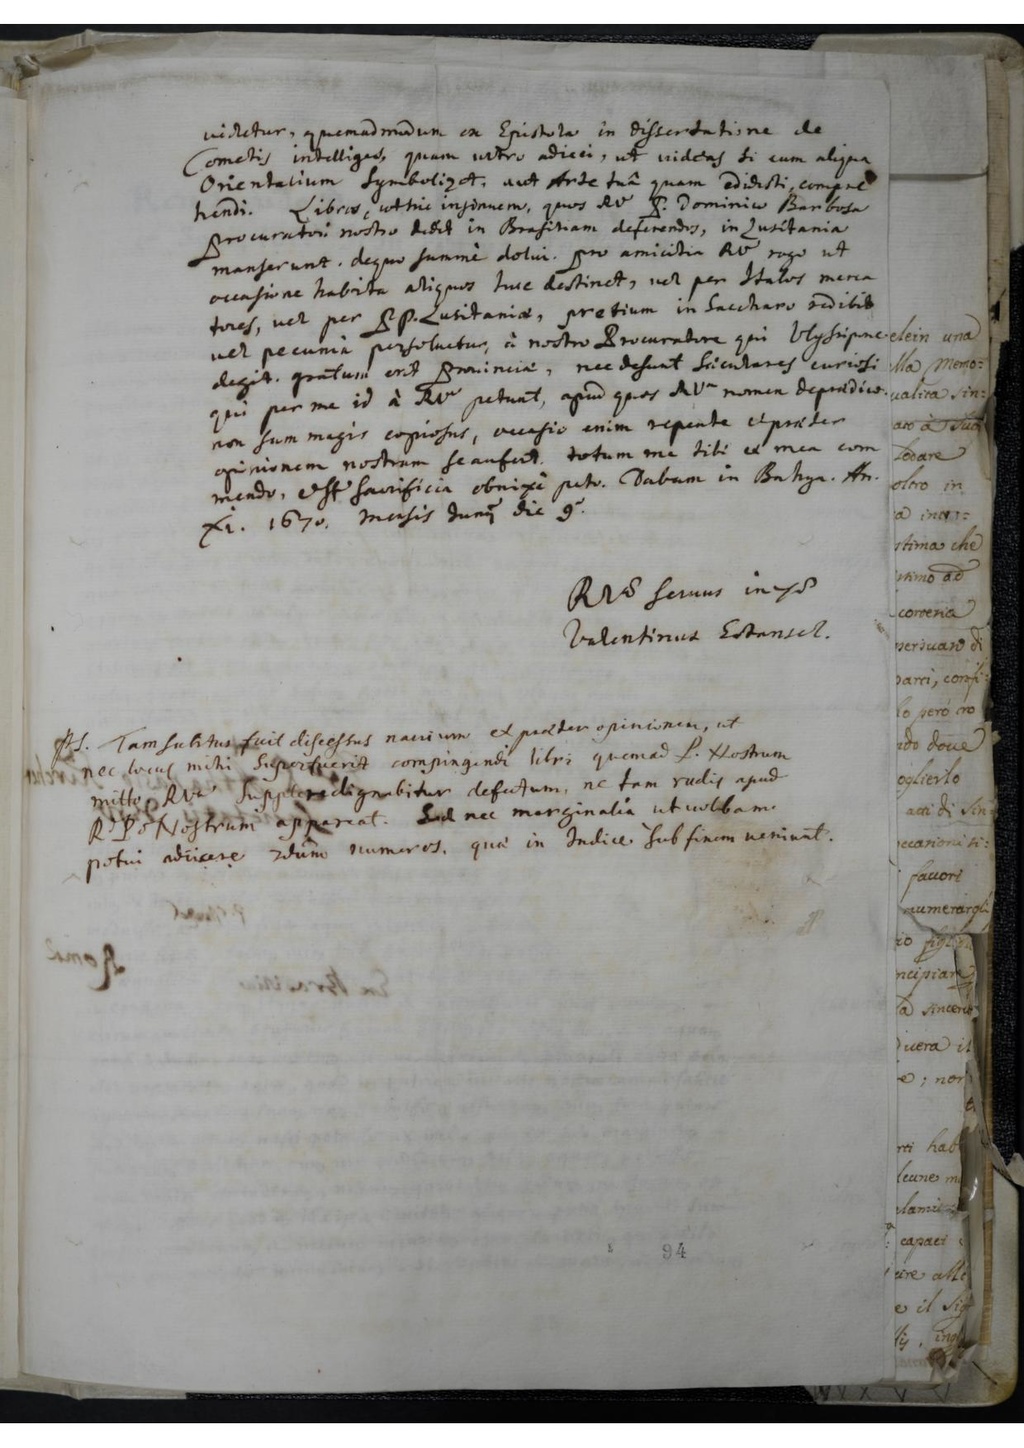 videtur, quemadmodum ex Epistola in dissertatione de
Cometis intelliges, quam ultro adieci, ut videas si cum aliqua
Orientalium symbolizet, aut Arte tuâ quam edidisti, compre
hendi. Libros, ut hic insinuem, quos RV P. Dominico Barbosa
Procuratori nostro dedit in Brasiliam deferendos, in Lusitania
manserunt. de quo summè dolui. pro amicitia RV rogo ut
occasione habita aliquos huc destinet, vel per Italos merca
tores, vel per PP. Lusitaniæ, pretium in Saccharo redibit
vel pecunia persoluetur, à nostro Procuratore qui Ulyssipone
degit. gratum erit Prouinciæ, nec desunt sæculares curiosi
qui per me id à RVa petunt, apud quos RVæ nomen deprædico.
non sum magis copiosus, occasio enim repente et præter
opinionem nostram se aufert. totum me tibi et mea com
mendo, et SS Sacrificia obnixè peto. Dabam in Bahya. An.
Xi. 1670. mensis Junij die 9.
RVæ servus in Xo
Valentinus Estansel.
PS. Tam subitus fuit discessus navium et præter opinionem, ut
nec locus mihi superfuerit compingendi libri quem ad P. Nostrum
mitto, RVa supplere dignabitur defectum, ne tam rudis apud
R. P. Nostrum appareat. Sed nec marginalia ut volebam
potui adiicere numeros, quæ in Indice sub finem veniunt.
Romæ
Ex Brasilia
94
elein una
lla memo:
ualita sin:
aro à sua
lodare
oltro in
stima che
stimo ad
persuaso di
parci, confi
lo però no
ndo doue
oglierlo
atti di sin
occasioni
fauori
numerargli
ncipiar
a sincero
ouera il
e; non
rti hab
capaci
ire alli
e il Sig